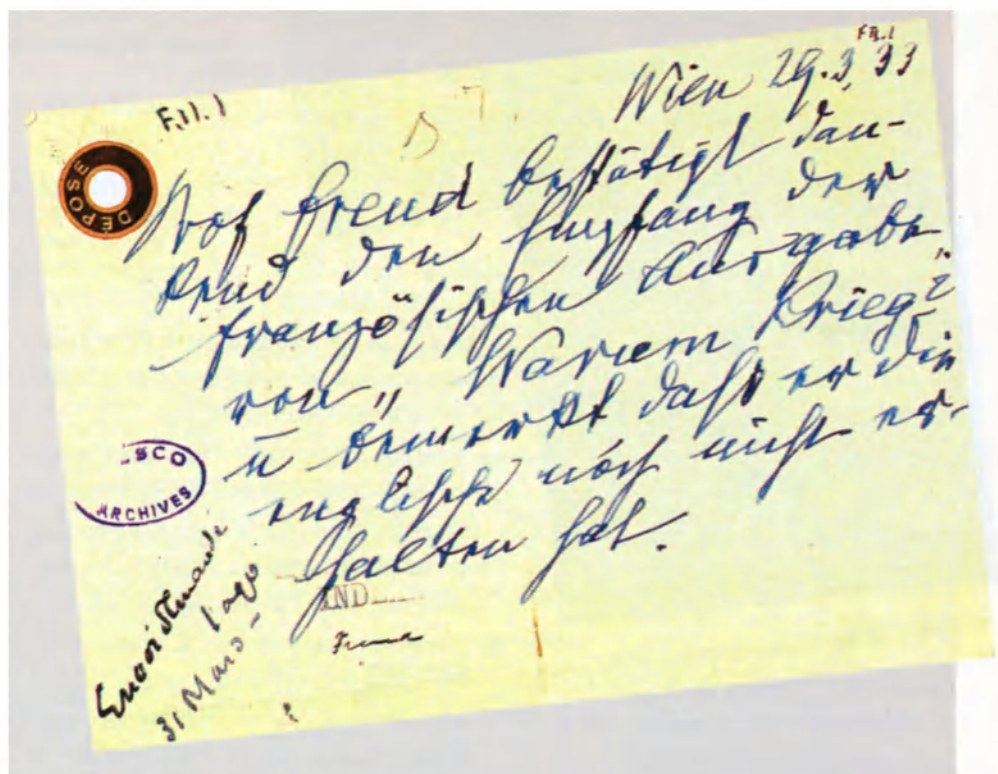 FR.1
F.11.1
Wien 29.3.33
DEPOSE
Prof Freud bestätigt dan-
kend den Empfang der
französischen Ausgabe
von „Warum Krieg?“
u bemerkt daß er die
englische noch nicht er-
halten hat.
SCO
ARCHIVES
31 Mars
IND